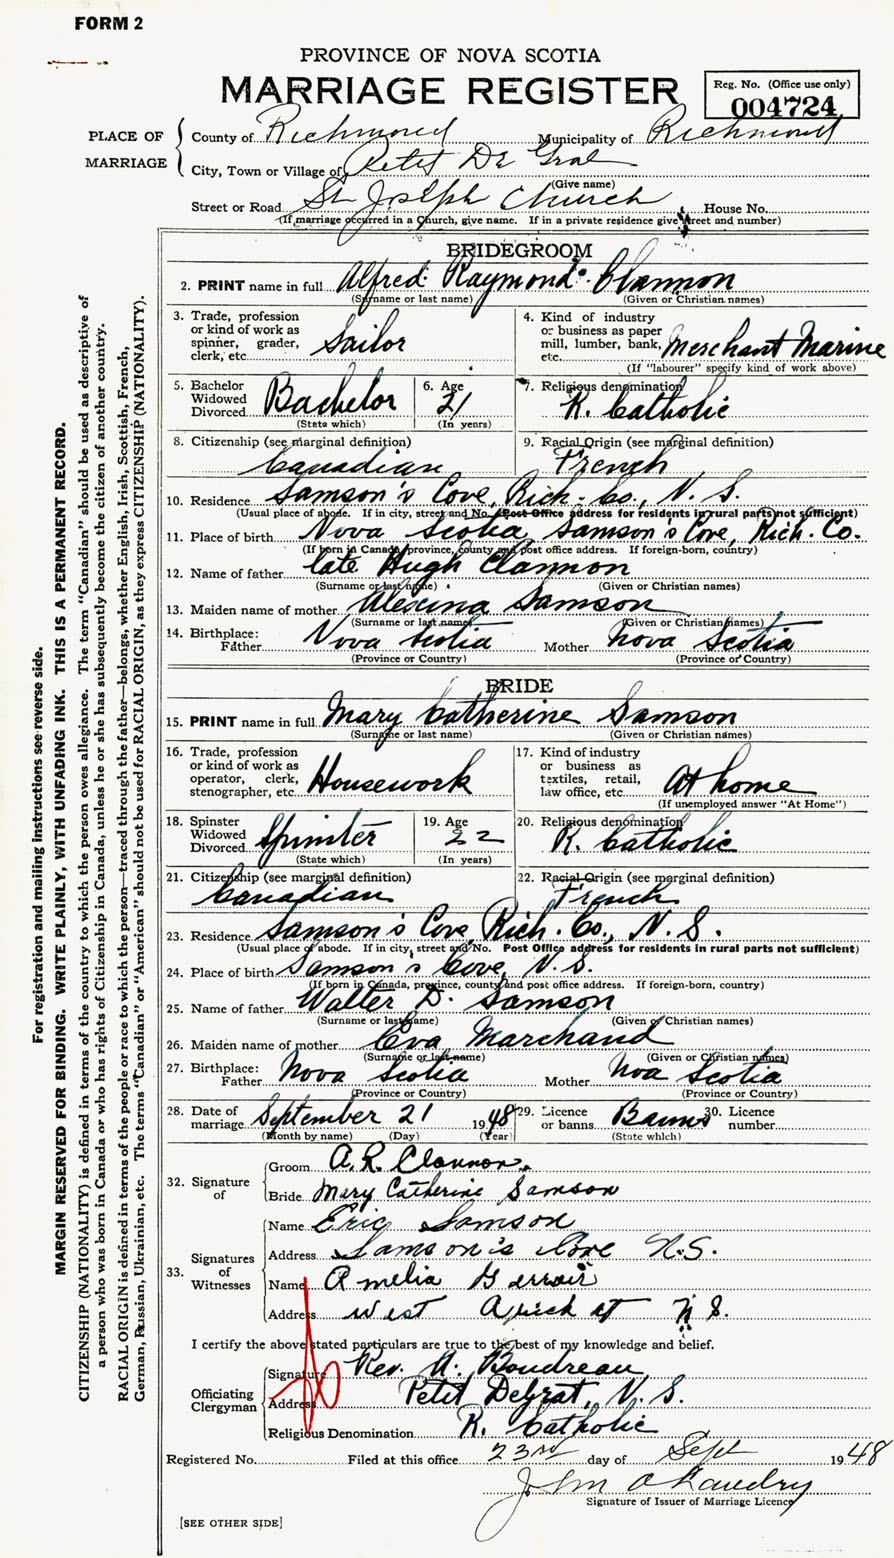 FORM 2
PROVINCE OF NOVA SCOTIA
MARRIAGE REGISTER
Reg. No. (Office use only)
004724
PLACE OF MARRIAGE
County of Richmond Municipality of Richmond
City, Town or Village of Petit De Grat
(Give name)
Street or Road St Joseph Church House No.
(If marriage occurred in a Church, give name. If in a private residence give street and number)
BRIDEGROOM
2. PRINT name in full Alfred Raymond Clannon
(Surname or last name) (Given or Christian names)
3. Trade, profession or kind of work as spinner, grader, clerk, etc. Sailor
4. Kind of industry or business as paper mill, lumber, bank, etc. Merchant Marine
(If "labourer" specify kind of work above)
5. Bachelor Widowed Divorced Bachelor
(State which)
6. Age 21
(In years)
7. Religious denomination
R. Catholic
8. Citizenship (see marginal definition)
Canadian
9. Racial Origin (see marginal definition)
French
10. Residence Samson's Cove, Rich. Co., N. S.
(Usual place of abode. If in city, street and No. Post Office address for residents in rural parts not sufficient)
11. Place of birth Nova Scotia, Samson's Cove, Rich. Co.
(If born in Canada, province, county and post office address. If foreign-born, country)
12. Name of father late Hugh Clannon
(Surname or last name) (Given or Christian names)
13. Maiden name of mother Alexina Samson
(Surname or last name) (Given or Christian names)
14. Birthplace:
Father Nova Scotia Mother Nova Scotia
(Province or Country) (Province or Country)
BRIDE
15. PRINT name in full Mary Catherine Samson
(Surname or last name) (Given or Christian names)
16. Trade, profession or kind of work as operator, clerk, stenographer, etc. Housework
17. Kind of industry or business as textiles, retail, law office, etc. At home
(If unemployed answer "At Home")
18. Spinster Widowed Divorced Spinster
(State which)
19. Age 22
(In years)
20. Religious denomination
R. Catholic
21. Citizenship (see marginal definition)
Canadian
22. Racial Origin (see marginal definition)
French
23. Residence Samson's Cove, Rich. Co., N. S.
(Usual place of abode. If in city, street and No. Post Office address for residents in rural parts not sufficient)
24. Place of birth Samson's Cove, N. S.
(If born in Canada, province, county and post office address. If foreign-born, country)
25. Name of father Walter D. Samson
(Surname or last name) (Given or Christian names)
26. Maiden name of mother Eva Marchand
(Surname or last name) (Given or Christian names)
27. Birthplace:
Father Nova Scotia Mother Noa Scotia
(Province or Country) (Province or Country)
28. Date of marriage September 21 1948
(Month by name) (Day) (Year)
29. Licence or banns Banns
(State which)
30. Licence number
32. Signature of
Groom A. R. Clannon.
Bride Mary Catherine Samson
33. Signatures of Witnesses
Name Eric Samson
Address Samson's Cove N.S.
Name Amelia
Address West Arichat N S.
I certify the above stated particulars are true to the best of my knowledge and belief.
Officiating Clergyman
Signature Rev. A. Boudreau
Address Petit Degrat, N. S.
Religious Denomination R. Catholic
Registered No. Filed at this office 23rd day of Sept 1948
John Landry
Signature of Issuer of Marriage Licence
[SEE OTHER SIDE]
For registration and mailing instructions see reverse side.
MARGIN RESERVED FOR BINDING. WRITE PLAINLY, WITH UNFADING INK. THIS IS A PERMANENT RECORD.
CITIZENSHIP (NATIONALITY) is defined in terms of the country to which the person owes allegiance. The term "Canadian" should be used as descriptive of
a person who was born in Canada or who has rights of Citizenship in Canada, unless he or she has subsequently become the citizen of another country.
RACIAL ORIGIN is defined in terms of the people or race to which the person—traced through the father—belongs, whether English, Irish, Scottish, French,
German, Russian, Ukrainian, etc. The terms "Canadian" or "American" should not be used for RACIAL ORIGIN, as they express CITIZENSHIP (NATIONALITY).